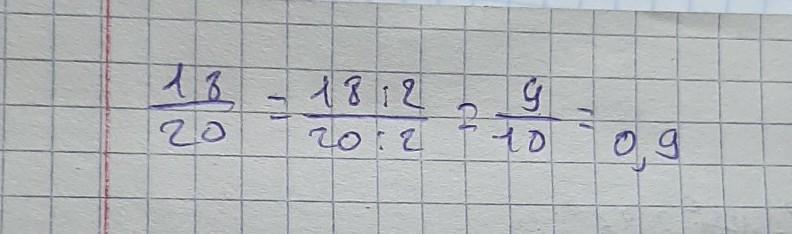 18/20 = 18:2/20:2 = 9/10 = 0,9